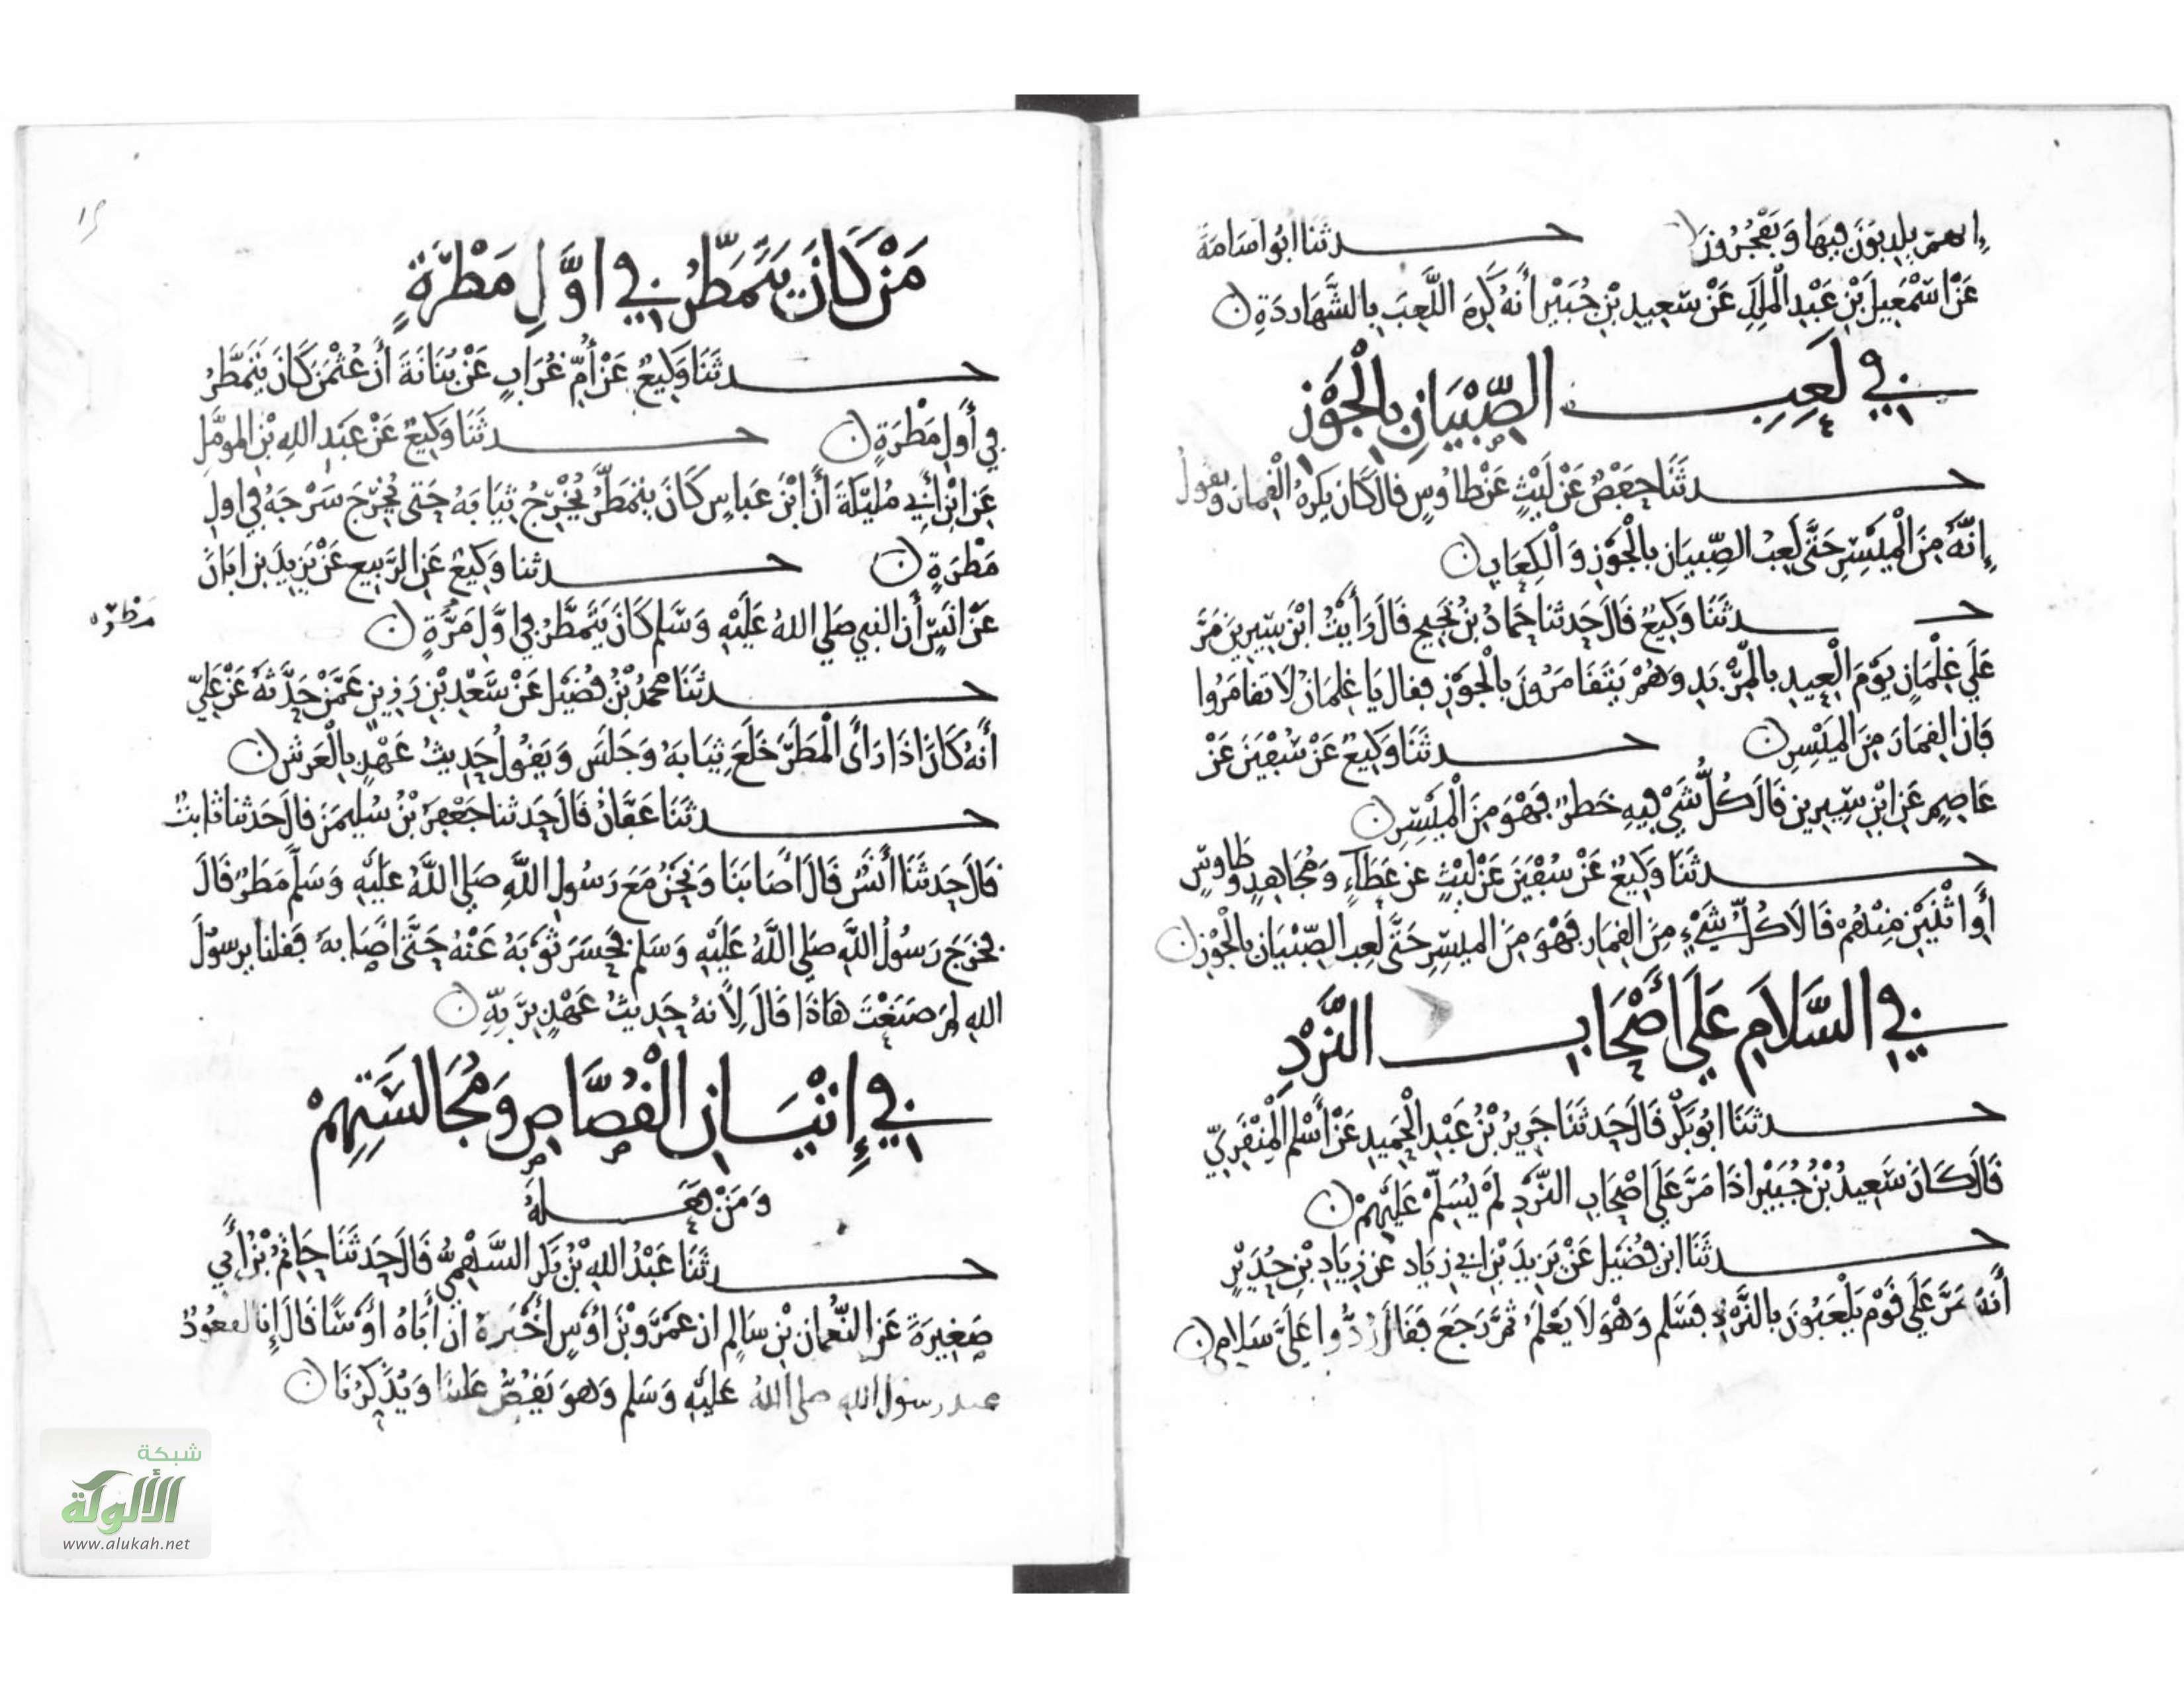 إنهم يكذبون فيها ويفجرون حدثنا ابو اسامة
عَنْ اسْمٰعِيلَ بْنِ عَبْدِ الْمَلِكِ عَنْ سَعِيدِ بْنِ جُبَيْرٍ أَنَّهُ كَرِهَ اللَّعِبَ بِالشَّهَارِدَةِ
في لَعِبِ الصِّبْيَانِ بِالْجَوْزِ
حدثنَا حَفْصٌ عَنْ لَيْثٍ عَنْ طاوُسٍ قال كَانَ يكرهُ الْقِمَارَ وَيَقُولُ
إِنَّهُ مِنَ الْمَيْسِرِ حَتَّى لَعِبُ الصِّبيَانِ بالْجَوْزِ وَالْكِعَابِ
حدثنَا وَكِيعٌ قَالَ حَدثنا حَمادُ بْنُ نَجِيحٍ قَالَ رَأَيْتُ ابْنَ سِيرِينَ مَرَّ
عَلَى غِلْمَانٍ يَوْمَ الْعِيدِ بِالْمِرْبَدِ وَهُمْ يَتَقَامَرُونَ بِالْجَوْزِ فقال يَا غِلمَانُ لَا تقامَرُوا
فَإن القِمَارَ مِنَ الْمَيْسِرِ حدثنَا وَكِيعٌ عَنْ سُفْيٰنَ عَنْ
عَاصِمٍ عَنِ ابْنِ سِيرِينَ قَالَ كُلُّ شَيْءٍ فِيهِ خَطَرٌ فَهْوَ مِنَ الْمَيْسِرِ
حدثَنَا وَكِيعٌ عَنْ سُفْيٰنَ عَنْ لَيْثٍ عن عَطَآءٍ وَمُجَاهِدٍ وَطَاوسٍ
أَوِ اثْنَيْنِ مِنْهُمْ قَالَا كُلُّ شَيْءٍ مِنَ القِمَارِ فَهْوَ مِنَ الميسِرِ حَتَّى لَعِب الصِّبْيَانِ بالْجَوْزِ
في السَّلَامِ عَلَى أَصْحَابِ النَّرْدِ
حدثنَا ابُو بَكْرٍ قَالَ حَدثَنَا جَرِيرُ بْنُ عَبْدِ الْحَمِيدِ عَنْ أَسْلم الْمِنْقَرِيِّ
قَالَ كَانَ سَعِيدُ بْنُ جُبَيْرٍ اذَا مَرَّ عَلَى اصْحَابِ النَّرْدِ لَمْ يُسَلِّمْ عَلَيْهِمْ
حدثَنَا ابن فُضَيْلٍ عَنْ يَزِيدَ بْنِ ابي زِيَاد عن زِيَادِ بْنِ حُدَيْرٍ
أَنَّهُ مَرَّ عَلَى قَوْمٍ يَلْعَبُونَ بالنَّرْدِ فَسَلم وَهْوَ لَا يَعْلَمُ ثُمَّ رَجَعَ فَقَالَ رُدُّوا عَلَيَّ سَلَامِي
١٥
مَنْ كَانَ يَتَمَطَّرُ فِي اوَّلِ مَطْرَةٍ
حدثَنَا وَكِيعٌ عَنْ أُمِّ غُرَابٍ عَنْ بُنَانَةَ أَنَّ عُثْمٰنَ كَانَ يَتَمَطَّرُ
في أَولِ مَطْرَةٍ حدثَنَا وَكِيعٌ عَنْ عَبْدِ اللهِ بْنِ المومَّلِ
عَنِ ابْنِ أَبِي مُلَيْكَةَ أَنَّ ابْنَ عَباسٍ كَانَ يتمَطَّرُ يُخْرِجُ ثِيَابَهُ حَتى يُخْرِجَ سَرْجَهُ في اولِ
مَطْرَةٍ حدثنا وَكِيعٌ عَنِ الرَّبِيعِ عَنْ يَزِيدَ بن ابَانَ
عَنْ انَسٍ أَن النبي صَلى اللهُ عَلَيْهِ وَسَّلم كَانَ يَتَمَطَّرُ في اوَّلِ مَرَّةٍ
مَطْرَه
حدثنَا محمدُ بْنُ فُضَيْلٍ عَنْ سَعْدِ بْنِ رَزِينٍ عَمَّنْ حَدَّثَهُ عَنْ عَلِيٍّ
أَنَّهُ كَانَ اذَا رَأَى الْمَطَرَ خَلَعَ ثِيَابَهُ وَجَلَسَ وَيَقُولُ حَدِيثُ عَهْدٍ بِالْعَرْشِ
حدثَنَا عَفَّانُ قَالَ حَدثنا جَعْفَرُ بْنُ سُلَيمٰنَ قالَ حَدثنا ثابتٌ
قَالَ حَدثَنَا أَنَسٌ قَالَ أَصَابَنَا وَنَحْنُ مَعَ رَسُولِ اللَّهِ صَلى اللَّهُ عَلَيْهِ وَسَلم مَطَرٌ قَالَ
فَخَرَجَ رَسُولُ اللَّهِ صَلى اللَّهُ عَلَيْهِ وَسَلم فَحَسَرَ ثَوْبَهُ عَنْهُ حَتَّى اصَابَهُ فَقلنا يرسولَ
اللهِ لِمَ صَنَعْتَ هَاذَا قَالَ لِأَنهُ حَدِيثُ عَهْدٍ بِرَبِّهِ
في إِتْيَانِ الْقُصَّاصِ وَمُجَالَسَتِهِمْ
وَمَنْ فَعَلَهُ
حدثَنَا عَبْدُ اللهِ بْنُ بَكْرٍ السَّهْمِيُّ قَالَ حَدثَنَا حَاتِمُ بْنُ أَبِي
صَغِيرَةَ عَنِ النُّعْمانِ بْنِ سَالِمٍ ان عَمْرَو بْنَ اوْسٍ أَخْبَرَهُ ان أَبَاهُ اوْسًا قَالَ إِنا لقعُودٌ
عند رسولِ اللهِ صلى اللهُ عَلَيْهِ وَسَلم وَهوَ يَقُصُّ عَلَينَا وَيُذَكِّرُنَا
شبكة
الألوكة
www.alukah.net